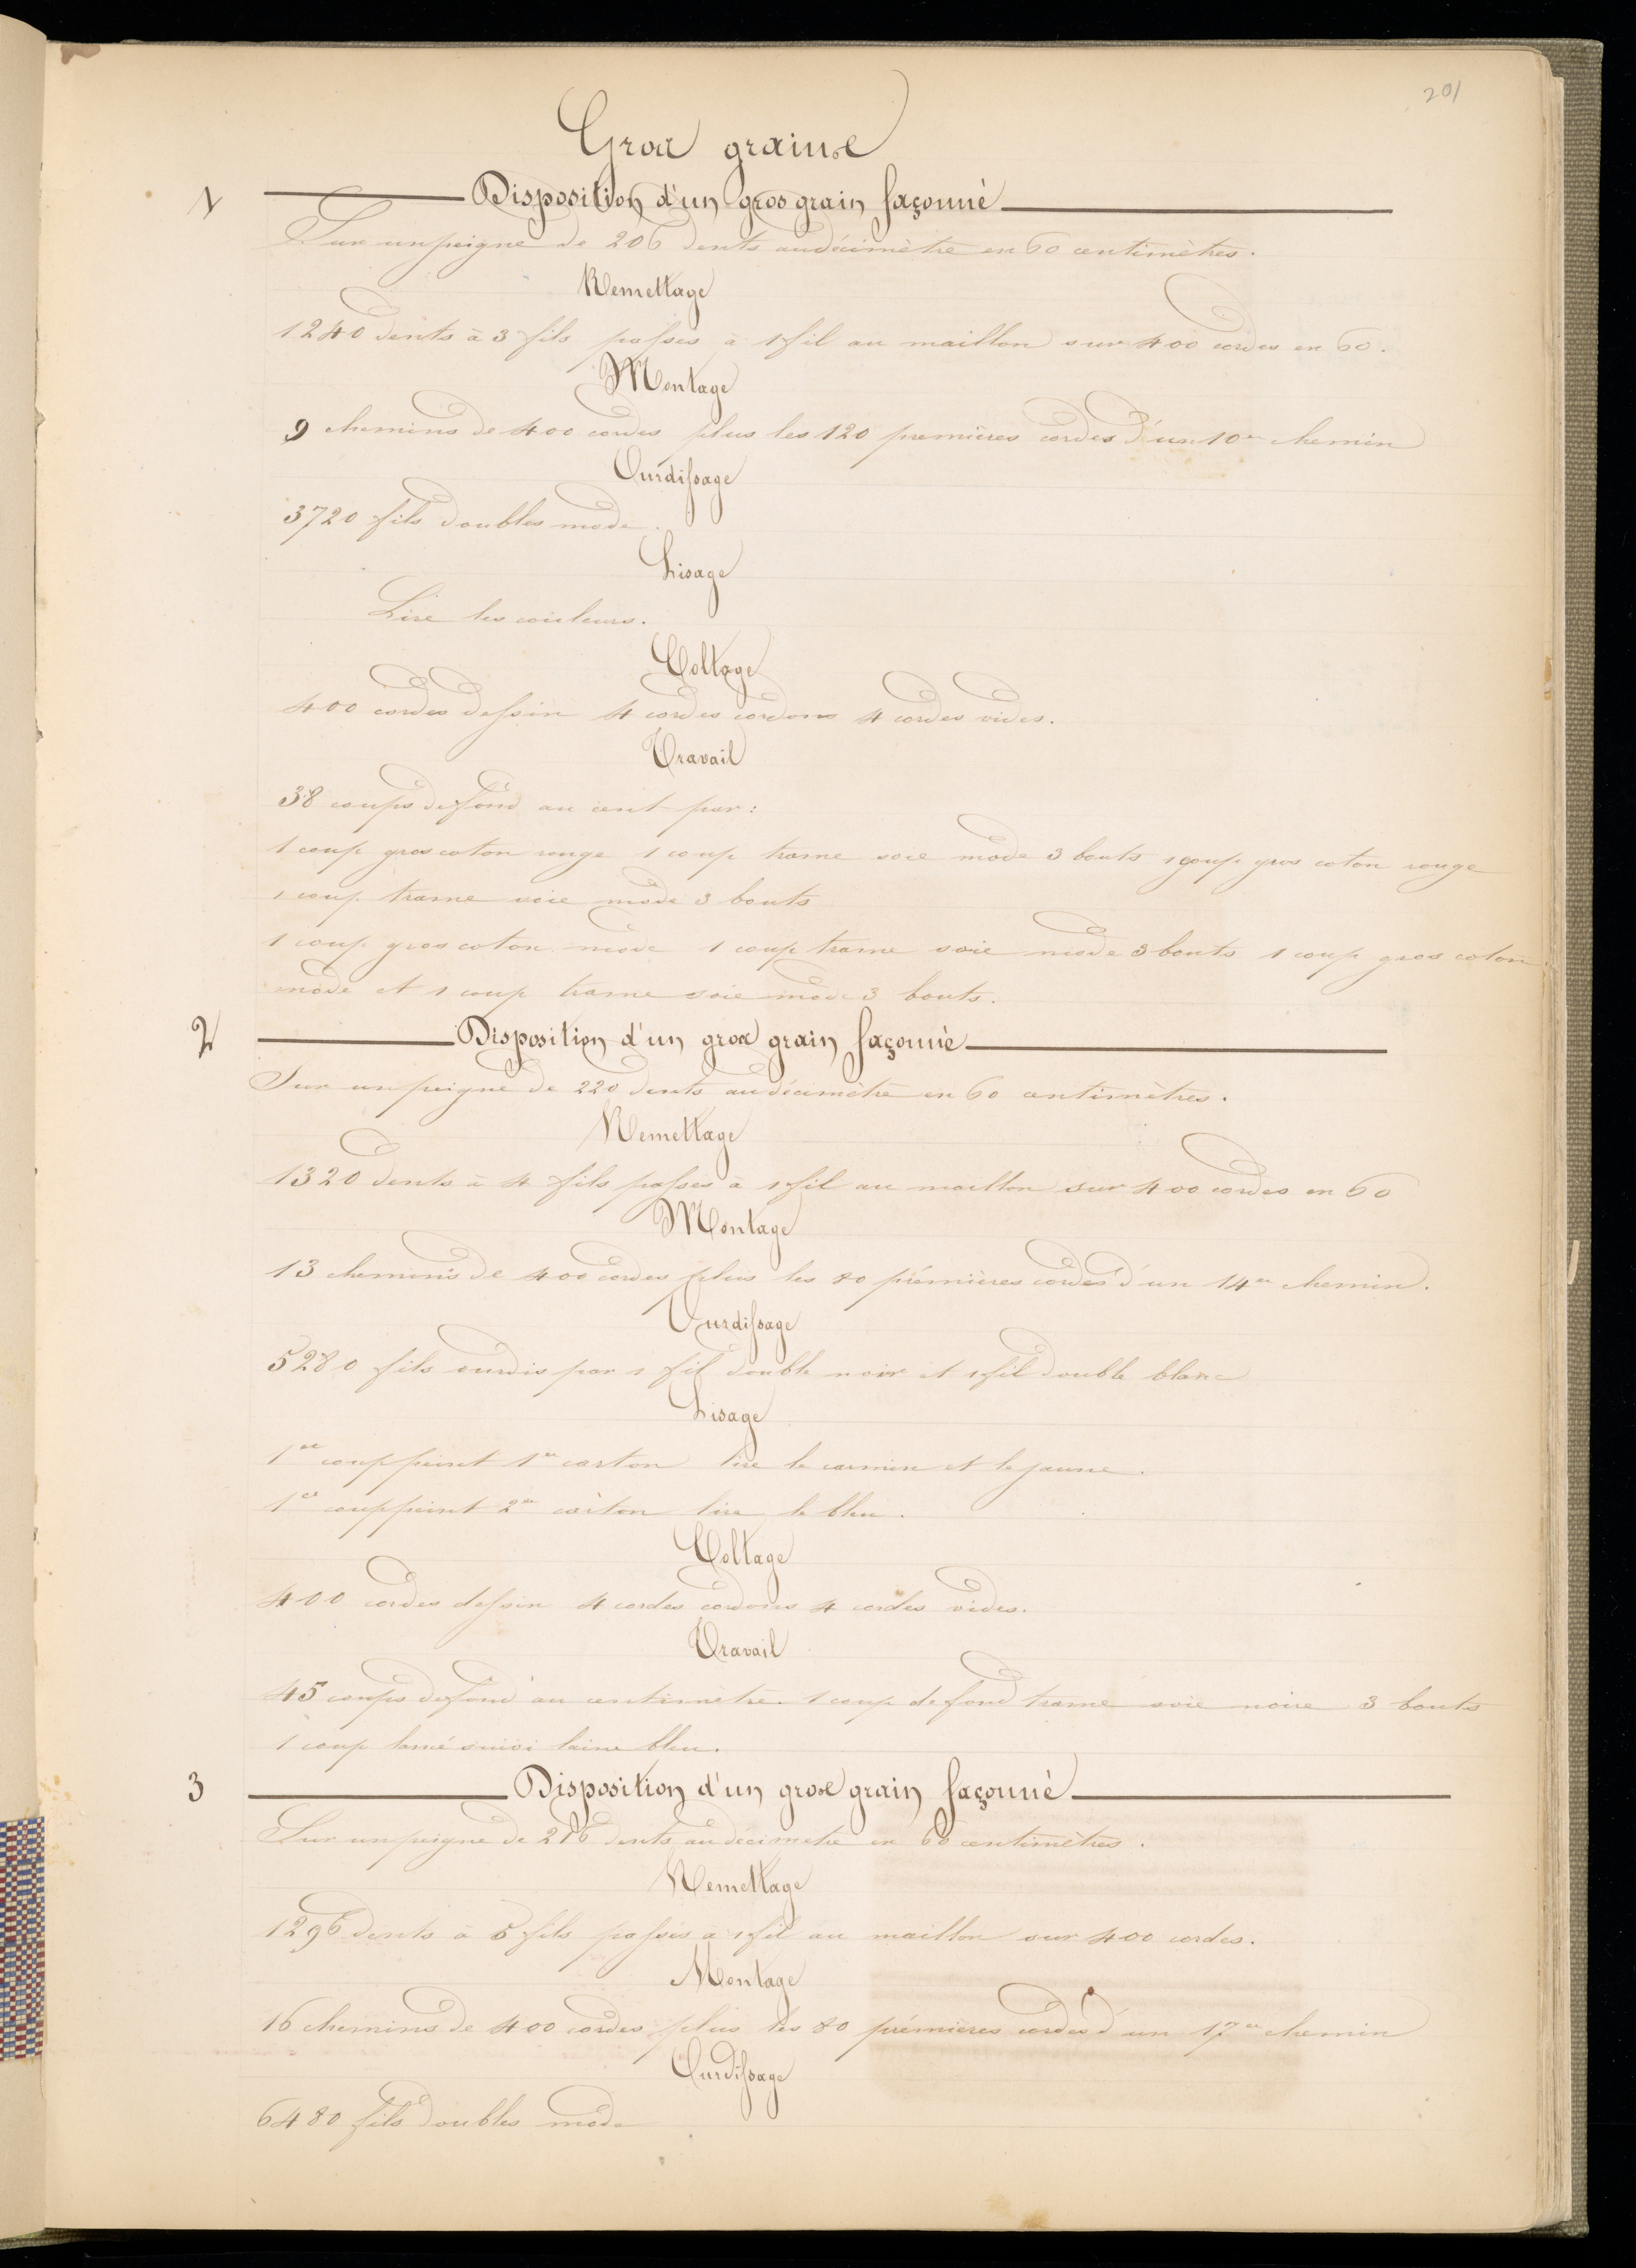 201
Gros grains
1 Disposition d'un gros grain façonné
Sur un peigne de 206 dents au décimètre en 60 centimètres.
Remettage
1240 dents à 3 fils passés à 1 fil au maillon sur 400 cordes en 60.
Montage
9 chemins de 400 cordes plus les 120 premières cordes d'un 10e chemin
Ourdissage
3720 fils doubles mode.
Lisage
Lire les couleurs.
Coltage
400 cordes dessin 4 cordes cordons 4 cordes vides.
Travail
38 coups de fond au cent par :
1 coup gros coton rouge 1 coup trame soie mode 3 bouts 1 coup gros coton rouge
1 coup trame soie mode 3 bouts
1 coup gros coton mode 1 coup trame soie mode 3 bouts 1 coup gros coton
mode et 1 coup trame soie mode 3 bouts.
2 Disposition d'un gros grain façonné
Sur un peigne de 220 dents au décimètre en 60 centimètres.
Remettage
1320 dents à 4 fils passés à 1 fil au maillon sur 400 cordes en 60
Montage
13 chemins de 400 cordes plus les 80 prémières cordes d'un 14e chemin.
Ourdissage
5280 fils ourdis par 1 fil double noir et 1 fil double blanc
Lisage
1er coup peint 1er carton lire le carmin et le jaune.
1er coup peint 2e carton lire le bleu.
Coltage
400 cordes dessin 4 cordes cordons 4 cordes vides.
Travail
45 coups de fond au centimètre. 1 coup de fond trame soie noire 3 bouts
1 coup lamé suivi laine bleu.
3 Disposition d'un gros grain façonné
Sur un peigne de 216 dents au décimetre en 60 centimètres.
Remettage
1296 dents à 5 fils passés a 1 fil au maillon sur 400 cordes.
Montage
16 chemins de 400 cordes plus les 80 prémières cordes d'un 17e chemin
Ourdissage
6480 fils doubles mode